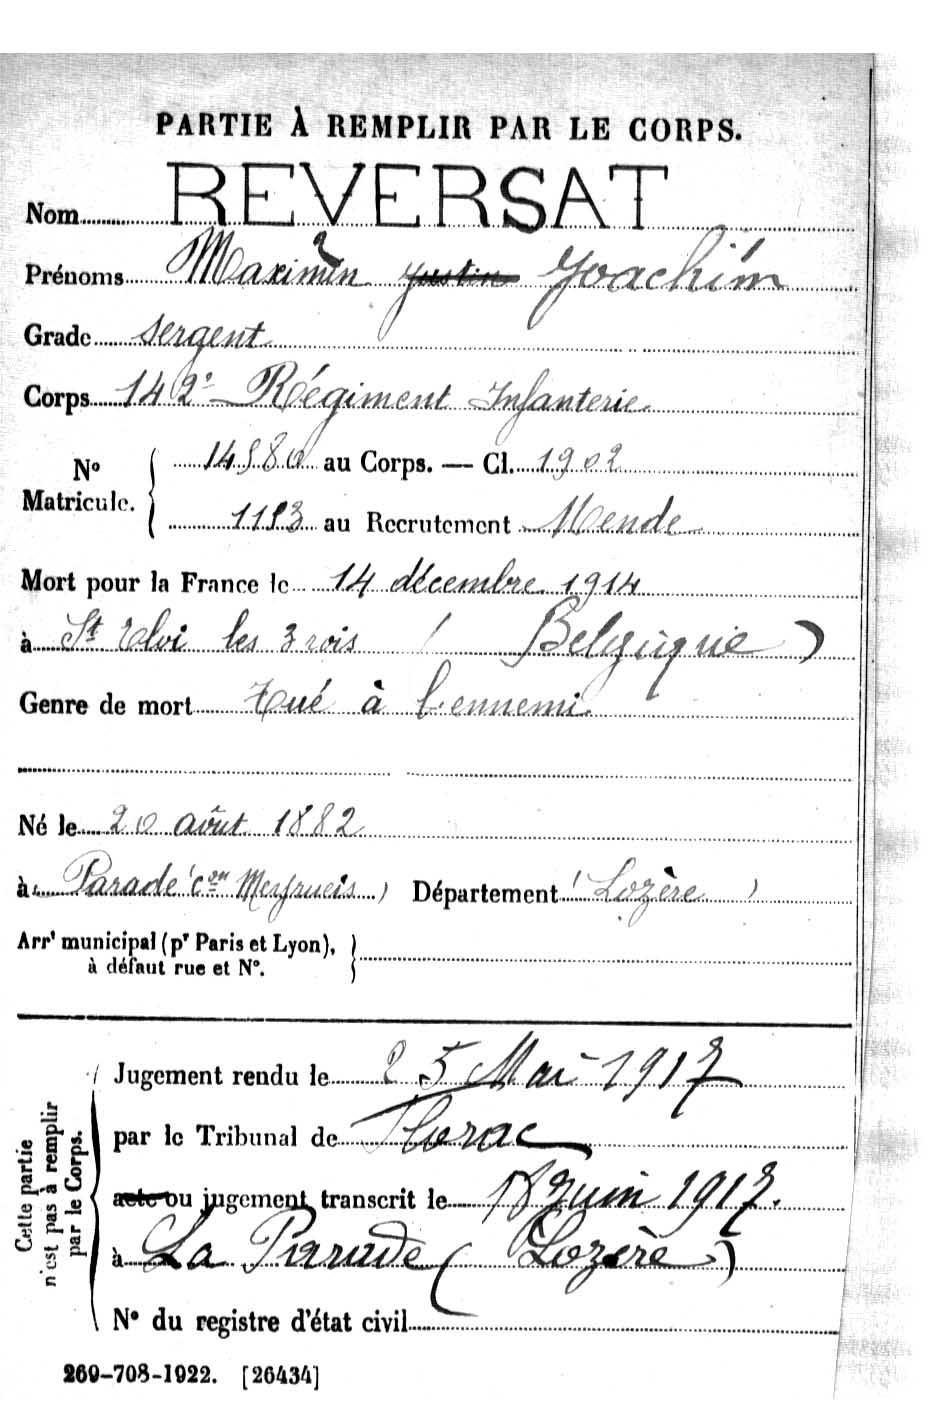 PARTIE À REMPLIR PAR LE CORPS.
Nom REVERSAT
Prénoms Maximin Justin Joachim
Grade Sergent
Corps 142e Régiment Infanterie
N° Matricule. 14580 au Corps. — Cl. 1902
1193 au Recrutement Mende
Mort pour la France le 14 décembre 1914
à St Eloi les 3 rois ( Belgique )
Genre de mort Tué à l'ennemi
Né le 20 août 1882
à Parade (Con Meyrueis) Département (Lozère)
Arrt municipal (pr Paris et Lyon),
à défaut rue et N°.
Cette partie n'est pas à remplir par le Corps.
Jugement rendu le 25 Mai 1917
par le Tribunal de Florac
acte ou jugement transcrit le Juin 1917.
à La Parade ( Lozère )
N° du registre d'état civil
269-708-1922. [26434]